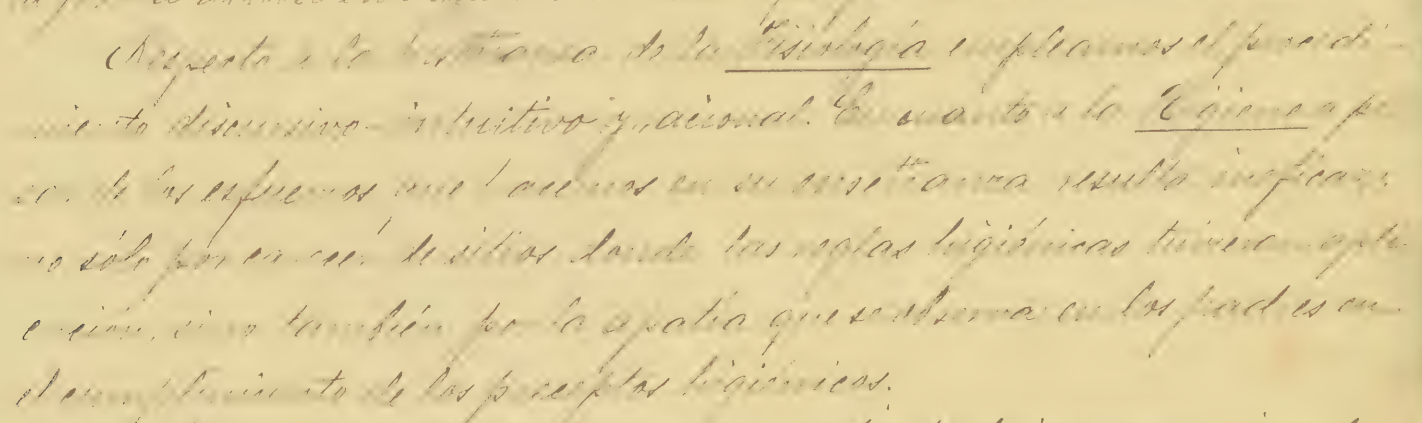 Respecto a la enseñanza de la Fisiología empleamos el procedi-
miento discursivo-intuitivo y racional. En cuánto a la Higiene a pe-
sar de los esfuerzos que hacemos en su enseñanza resulta ineficaz
no sólo por carecer de sitios donde las reglas higiénicas tuvieran apli-
cación, sino también por la apatía que se observa en los padres en
el cumplimiento de los preceptos higiénicos.